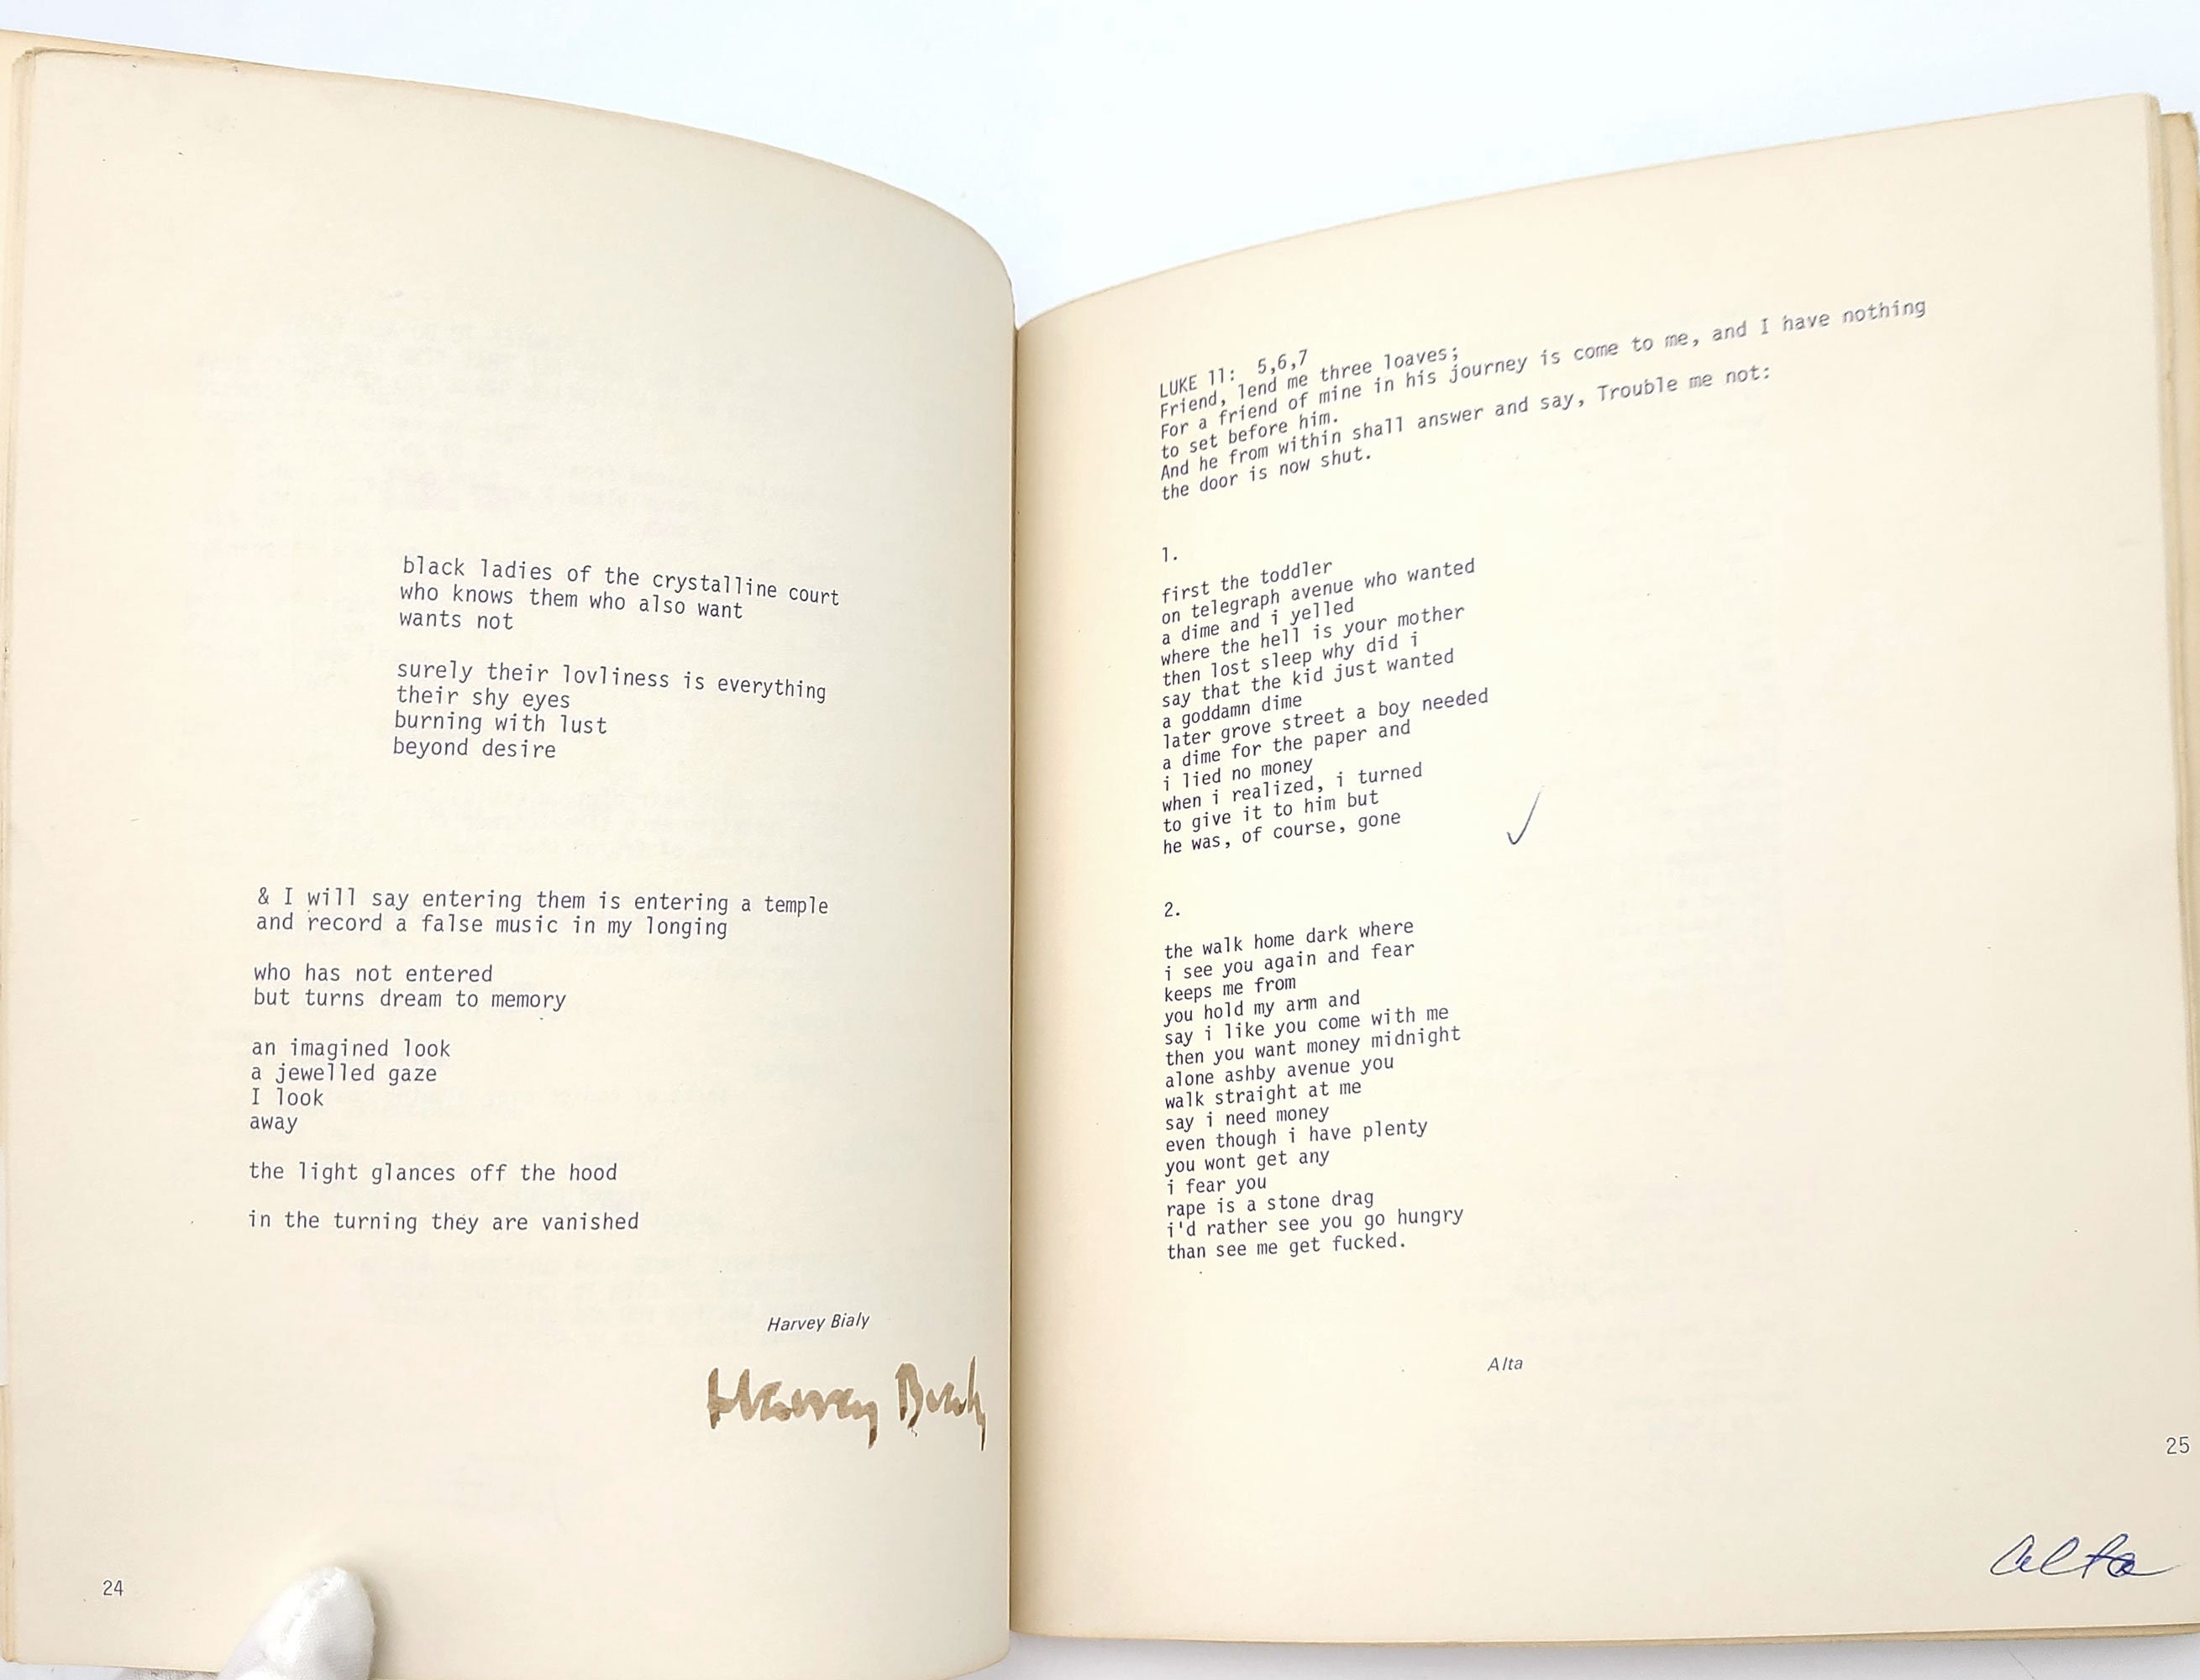 black ladies of the crystalline court
who knows them who also want
wants not
surely their lovliness is everything
their shy eyes
burning with lust
beyond desire
& I will say entering them is entering a temple
and record a false music in my longing
who has not entered
but turns dream to memory
an imagined look
a jewelled gaze
I look
away
the light glances off the hood
in the turning they are vanished
Harvey Bialy
Harvey Bialy
24
LUKE 11: 5,6,7
Friend, lend me three loaves;
For a friend of mine in his journey is come to me, and I have nothing
to set before him.
And he from within shall answer and say, Trouble me not:
the door is now shut.
1.
first the toddler
on telegraph avenue who wanted
a dime and i yelled
where the hell is your mother
then lost sleep why did i
say that the kid just wanted
a goddamn dime
later grove street a boy needed
a dime for the paper and
i lied no money
when i realized, i turned
to give it to him but
he was, of course, gone
2.
the walk home dark where
i see you again and fear
keeps me from
you hold my arm and
say i like you come with me
then you want money midnight
alone ashby avenue you
walk straight at me
say i need money
even though i have plenty
you wont get any
i fear you
rape is a stone drag
i'd rather see you go hungry
than see me get fucked.
Alta
25
alta